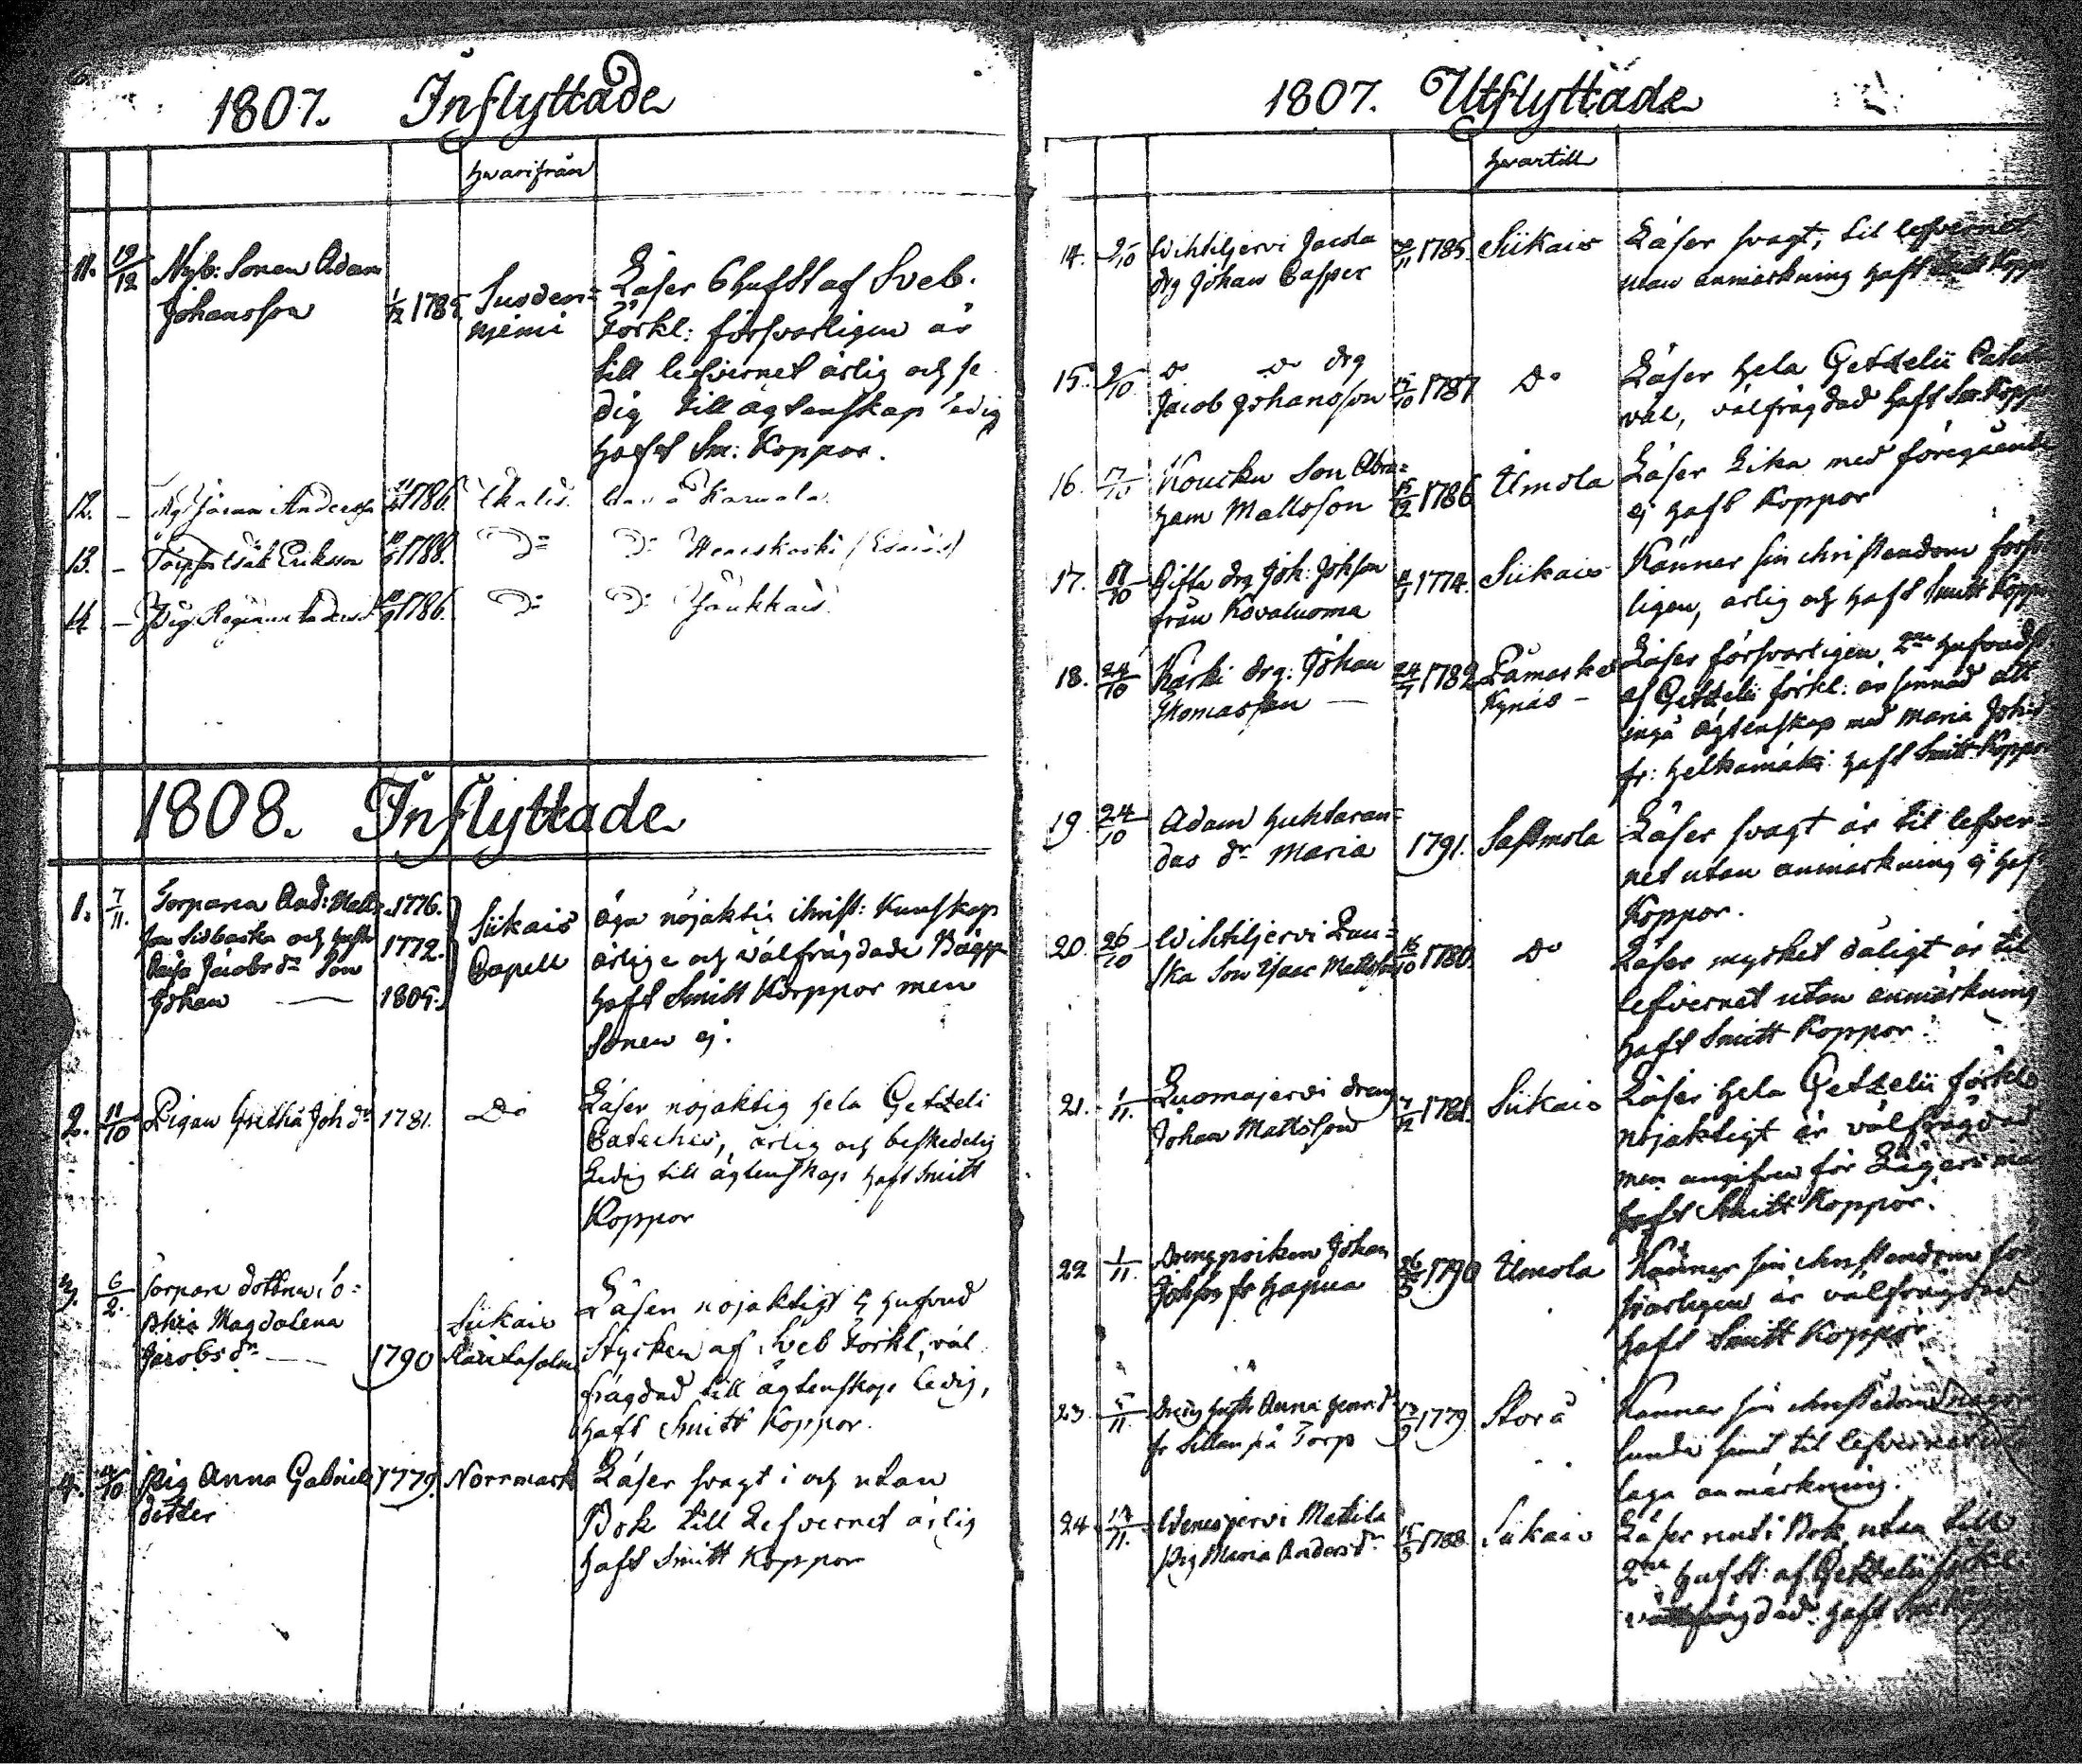 1807. Inflyttade
hvarifrån
11. 19/12 Nyb: Sonen Adam
Johansson
1/12 1785. Suoden=
njemi
Läser 6 hufst af Sveb.
Förkl: försvarligen är
till lefvernet ärlig och se
dig till ägtenskap ledig
haft Sm: Koppor.
12. – 1786. Ikalis.
13. – Eriksson 1788. D:o D:o
14. – Pig. Regina 1786. D:o D:o
1808. Inflyttade
1. 7/11. Torparen And: Matts 1776.
och hustr
Caisa Jacobs dr Son 1772.
Johan — 1805.
Siikais
Capell
äga nöjaktig christ: Kunskap
ärlige och välfrägdade Bägge
haft Smitt Korppor men
Sonen ej.
2. 11/10 Pigan Gretha Joh dr 1781. Do
Läser nöjaktig hela Getzeli
Cateches, ärlig och beskedelig
Ledig till ägtenskap haft Smitt
Koppor
3. 6/2. torpare dottren So=
phia Magdalena
Jacobs dr — 1790
Siikais
Läser nöjaktigt 4 hufvud
Stycken af Sveb Förkl, väl
frägdad till ägtenskap ledig,
haft Smitt Koppor.
4. /10 Pig Anna Gabriels 1779. Norrmark
dotter
Läser svagt i och utan
Bok till Lefvernet ärlig
haft Smitt Koppor
1807. Utflyttade
hvartill
14. 2/10 Wihtiljervi Jacola
drg Johan Casper
/11 1785. Siikais
Läser svagt, til lefvernet
utan anmärkning haft Smitt Koppor
15. 2/10 do do drg
Jacob Johansson /10 1787 Do
Läser hela Getzelii
väl, välfrägdad haft Sm. Koppor
16. 7/10 Koucku Son Abra=
ham Mattsson 15/12 1786 Ümola
Läser Lika med föregående
ej haft Koppor
17. /10 Gifta drg Joh: Johsson
från Kovaluoma
1774. Siikais
Känner sin christendom försvar
ligen, ärlig och haft Smitt Koppor
18. 24/10 Kärki drg: Johan
Thomasson —
24/7 1782 Påmarks
Kynäs –
Läser försvarligen 2ne hufvudst
af Getzelii förkl: är sinnad att
ingå ägtenskap med Maria Johs
fr: Helkamäki haft Smitt Koppor
19. 24/10 Adam Huhtaran=
das dr Maria 1791. Sastmola
Läser svagt är til lefver=
net utan anmärkning ej haft
Koppor.
20. 26/10 Wihtiljervi Lau=
ska Son Isaac Mattsson /10 1780. Do
Läser mycket dåligt är til
lefvernet utan anmärkning
haft Smitt Koppor.
21. 1/11. Luomajervi dreng
Johan Mattsson
/12 1781. Siikais
Läser hela Getzelii förkl
nöjaktigt är välfrägdad
men angifven för Lägersmål
haft Smitt Koppor.
22 1/11. Drengpoiken Johan
Johsson fr Hapua
26/ 1790 Ümola
Känner sin christendom för
svarligen är välfrägdad
haft Smitt Koppor
23. 5/11. Dreng hustr Anna Henr. dr
fr Torp
1779. Storå
Känner sin christendom någor
lunda samt til lefvernet
laga anmärkning.
24. 12/11. Wenesjervi Mattila
Pig Maria Anders dr
15/3 1788 Siikais
Läser rent i Bok, utan till
2ne hufst: af Getzelii förkl
välfrägdad haft Sm Koppor